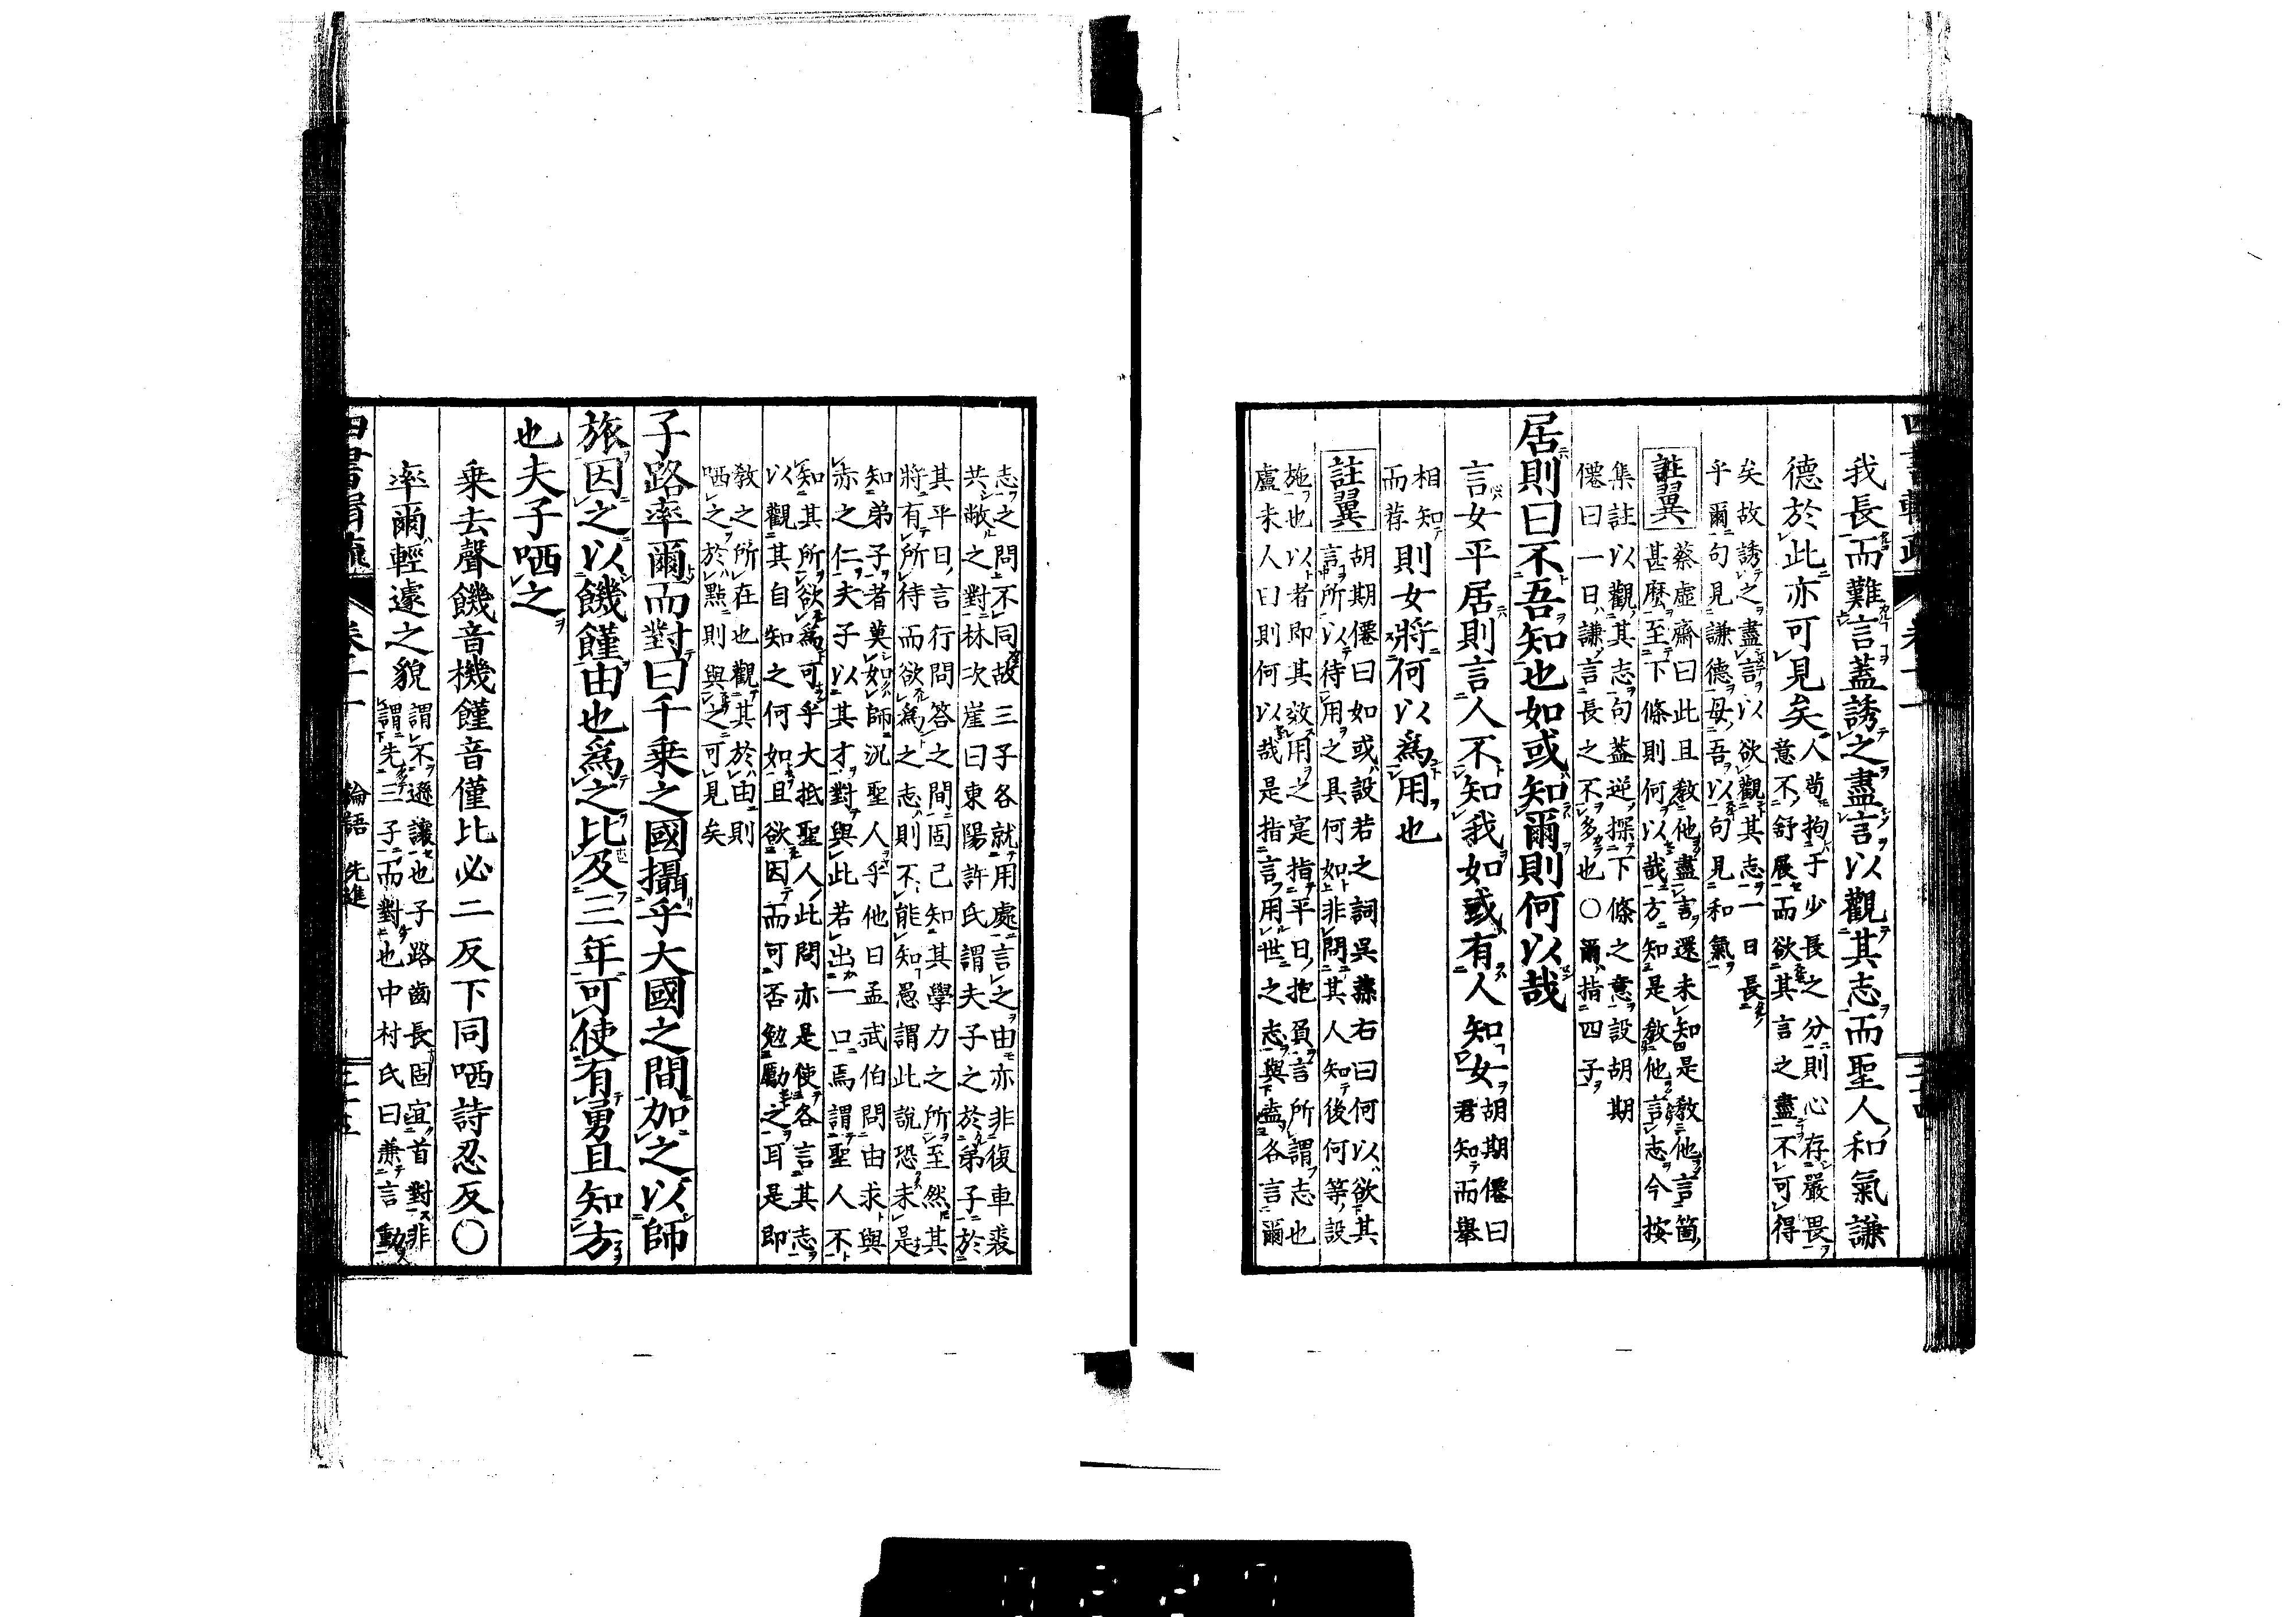 我長而難言蓋誘之盡言以觀其志而聖人和氣謙
德於此亦可見矣人苟拘于少長之分則心存嚴畏
意不舒展而欲其言之盡不可得
矣故誘之盡言以欲觀其志一日長
乎爾句見謙德毋吾以句見和氣
註翼
蔡虛齋曰此且教他盡言還未知是教他言箇
甚麼至下條則何以哉方知是教他言志今按
集註以觀其志句蓋逆探下條之意設胡期
僊曰一日謙言長之不多也〇爾指四子
居則曰不吾知也如或知爾則何以哉
言女平居則言人不知我如或有人知女胡期僊曰
君知而舉
相知
而荐
則女將何以為用也
註翼
胡期僊曰如或設若之詞吳蓀右曰何以欲其
言所以待用之具何如非問其人知後何等設
施也以者即其效用之寔指平日抱負言所謂志也
盧未人曰則何以哉是指言用世之志與盍各言爾
志之問不同故三子各就用處言之由亦非復車裘
共敝之對林次崖曰東陽許氏謂夫子之於弟子於
其平日言行問答之間固已知其學力之所至然其
將有所待而欲為之志則不能知愚謂此說恐未是
知弟子者莫如師況聖人乎他日孟武伯問由求與
赤之仁夫子以其才對與此若出一口焉謂聖人不
知其所欲為可乎大抵聖人此問亦是使各言其志
以觀其自知之何如且欲因而可否勉勵之耳是即
教之所在也觀其於由則
哂之於點則與之可見矣
子路率爾而對曰千乗之國攝乎大國之間加之以師
旅因之以饑饉由也為之比及三年可使有勇且知方
也夫子哂之
乗去聲饑音機饉音僅比必二反下同哂詩忍反〇
率爾輕遽之貌謂不遜讓也子路齒長固宜首對非
謂先三子而對也中村氏曰兼言動
卷十一
論語 先進
三十五